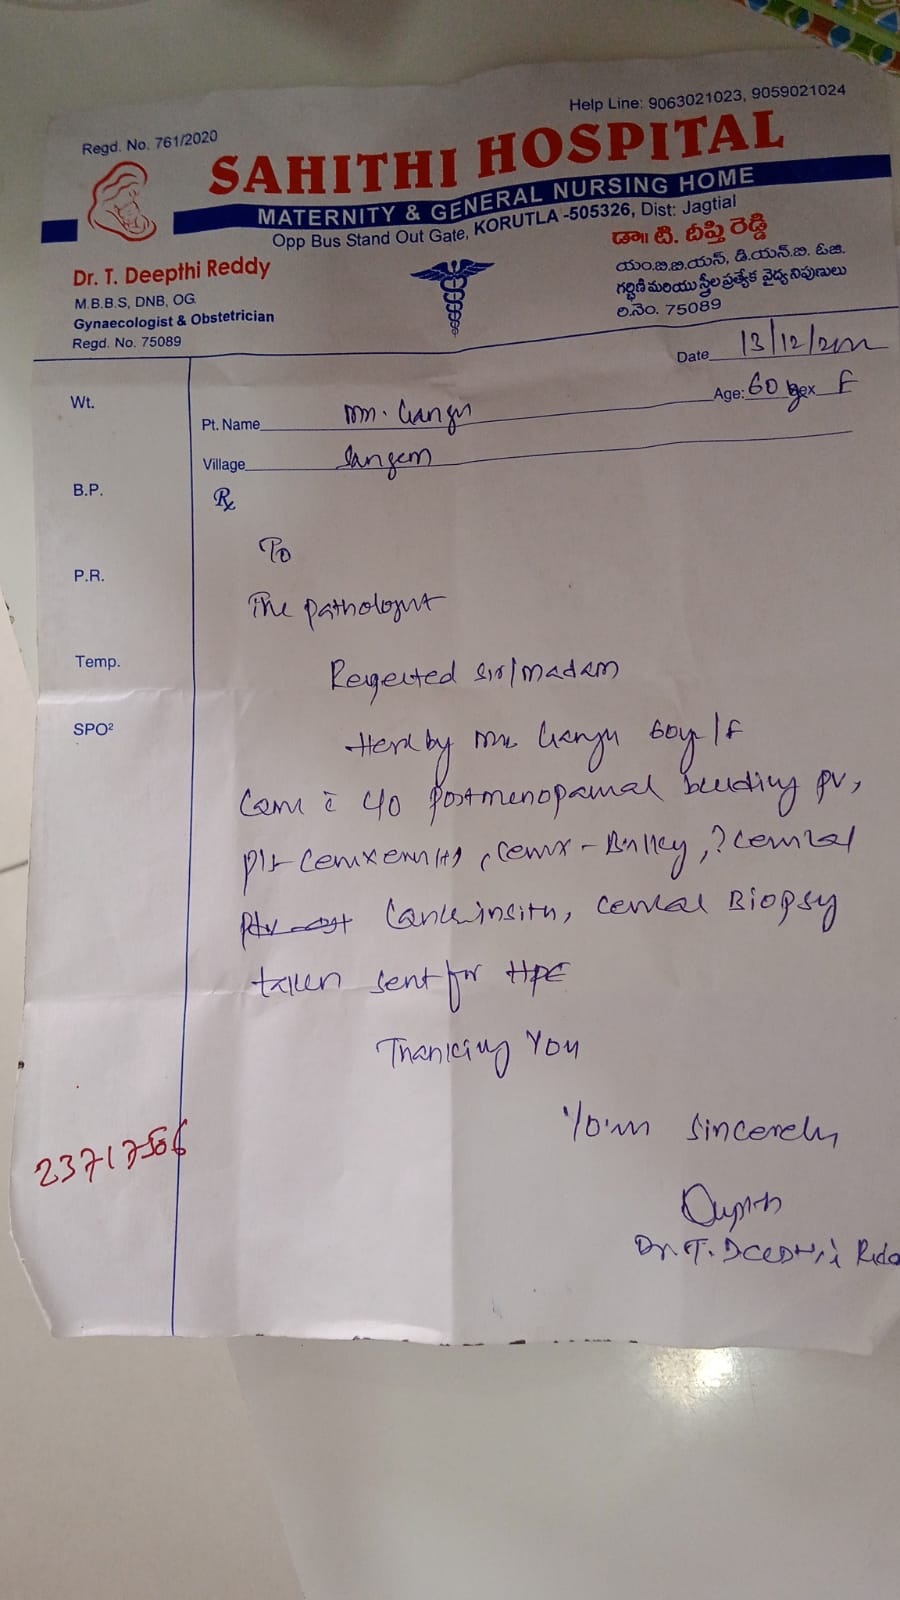 Help Line: 9063021023, 9059021024
Regd. No. 761/2020
SAHITHI HOSPITAL
MATERNITY & GENERAL NURSING HOME
Opp Bus Stand Out Gate, KORUTLA-505326, Dist: Jagtial
Dr. T. Deepthi Reddy
M.B.B.S, DNB, OG
Gynaecologist & Obstetrician
Regd. No. 75089
డా॥ టి. దీప్తి రెడ్డి
యం.బి.బి.యస్, డి.యన్.బి. ఓ.జి.
గర్భిణి మరియు స్త్రీల ప్రత్యేక వైద్య నిపుణులు
రి.నెం. 75089
Date 13/12/
Wt.
Age: 60 Sex F
Pt. Name
Village
B.P.
℞
To
P.R.
The pathologist
Temp.
Respected Sir/madam
SPO²
Hereby 60yr/F
Came c̄ c/o Postmenopausal bleeding PV,
P/s- , cervix - , ? cervical
insitu, cervical Biopsy
taken sent for HPE
Thanking You
Yours sincerely
23717506
Dr. T. Deepthi